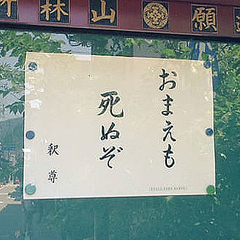 林山願
おまえも
死ぬぞ
釈尊